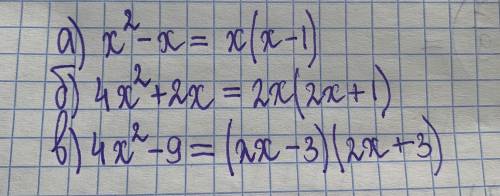 а) x²-x = x(x-1)
б) 4x²+2x = 2x(2x+1)
в) 4x²-9 = (2x-3)(2x+3)